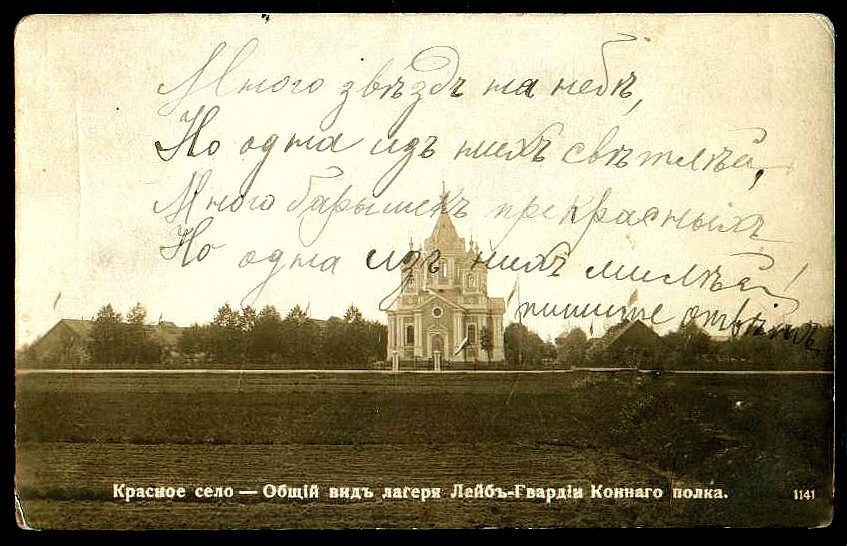 Много звѣздъ на небѣ,
Но одна изъ нихъ свѣтлѣй,
Много барышенъ прекрасныхъ
Но одна изъ нихъ милѣй!
пишите отвѣтъ.
Красное село — Общій видъ лагеря Лейбъ-Гвардіи Коннаго полка.
1141